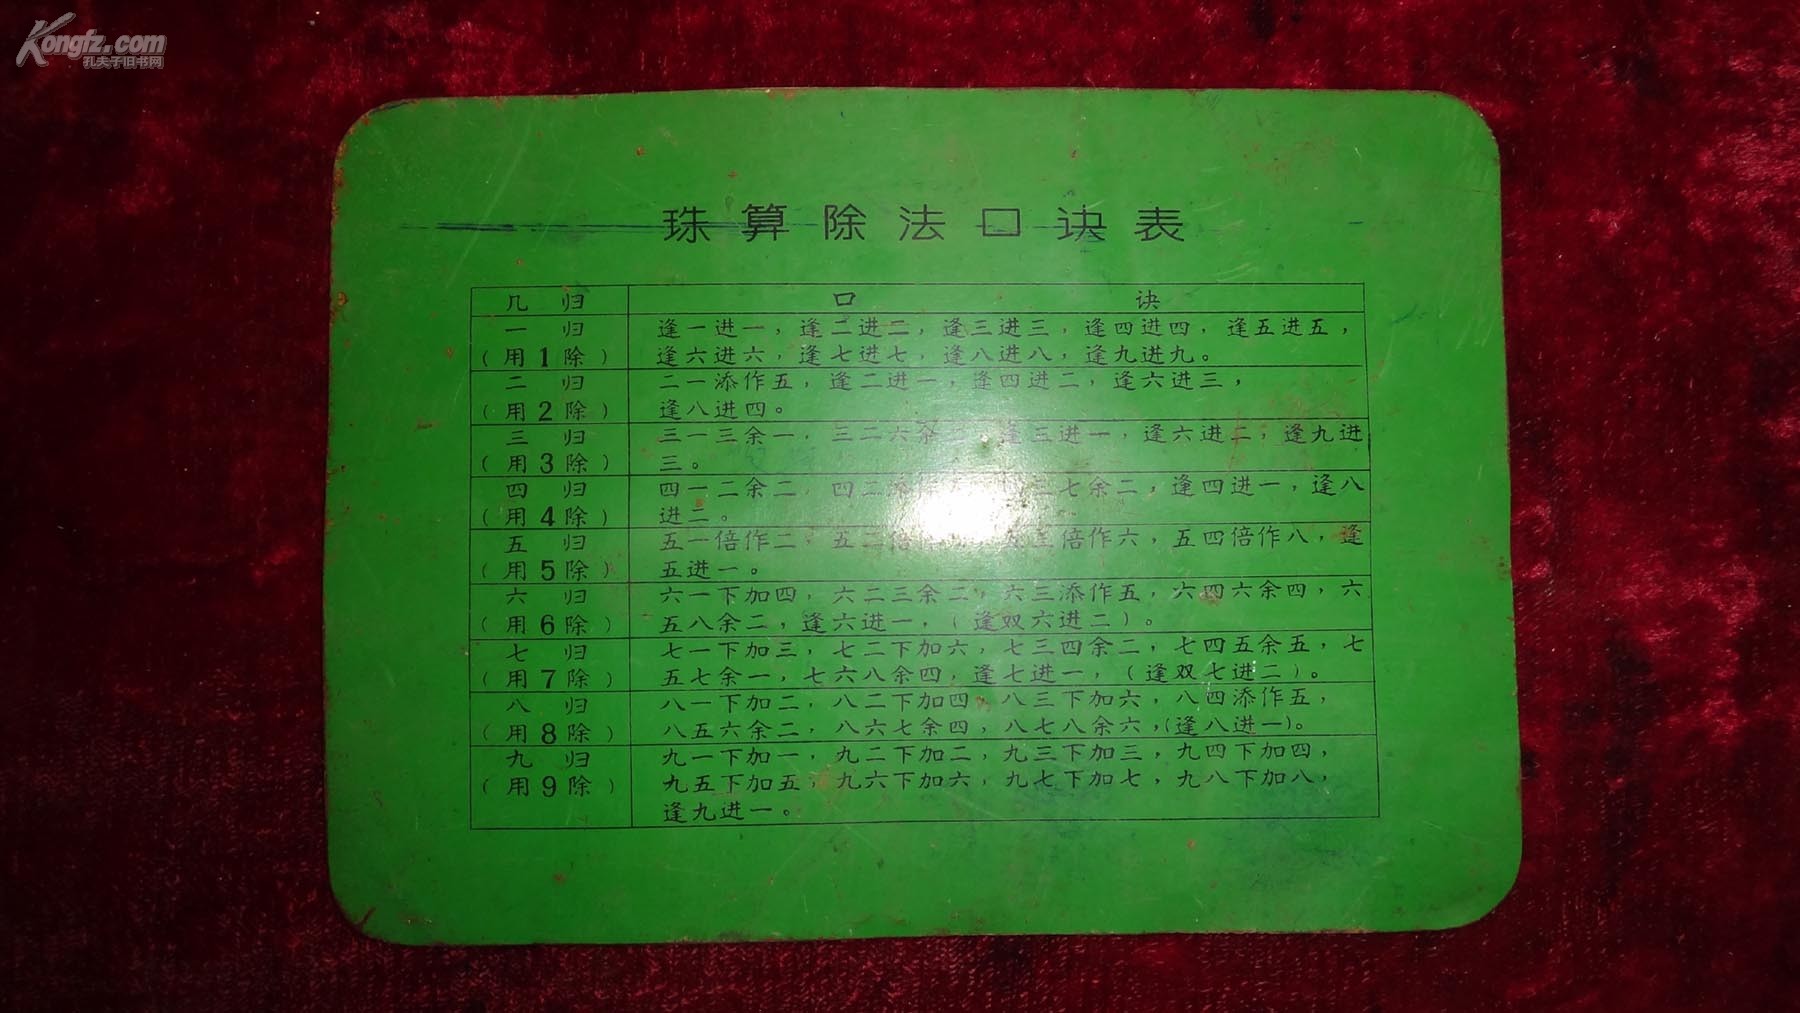 Kongfz.com
孔夫子旧书网
珠算除法口诀表
几归 口诀
一归 逢一进一，逢二进二，逢三进三，逢四进四，逢五进五，
（用1除） 逢六进六，逢七进七，逢八进八，逢九进九。
二归 二一添作五，逢二进一，逢四进二，逢六进三，
（用2除） 逢八进四。
三归 三一三余一，三二六余二，逢三进一，逢六进二，逢九进
（用3除） 三。
四归 四一二余二，四二添 三七余二，逢四进一，逢八
（用4除） 进二。
五归 五一倍作二，五二倍 五三倍作六，五四倍作八，逢
（用5除） 五进一。
六归 六一下加四，六二三余二，六三添作五，六四六余四，六
（用6除） 五八余二，逢六进一，（逢双六进二）。
七归 七一下加三，七二下加六，七三四余二，七四五余五，七
（用7除） 五七余一，七六八余四，逢七进一，（逢双七进二）。
八归 八一下加二，八二下加四，八三下加六，八四添作五，
（用8除） 八五六余二，八六七余四，八七八余六，（逢八进一）。
九归 九一下加一，九二下加二，九三下加三，九四下加四，
（用9除） 九五下加五，九六下加六，九七下加七，九八下加八，
逢九进一。